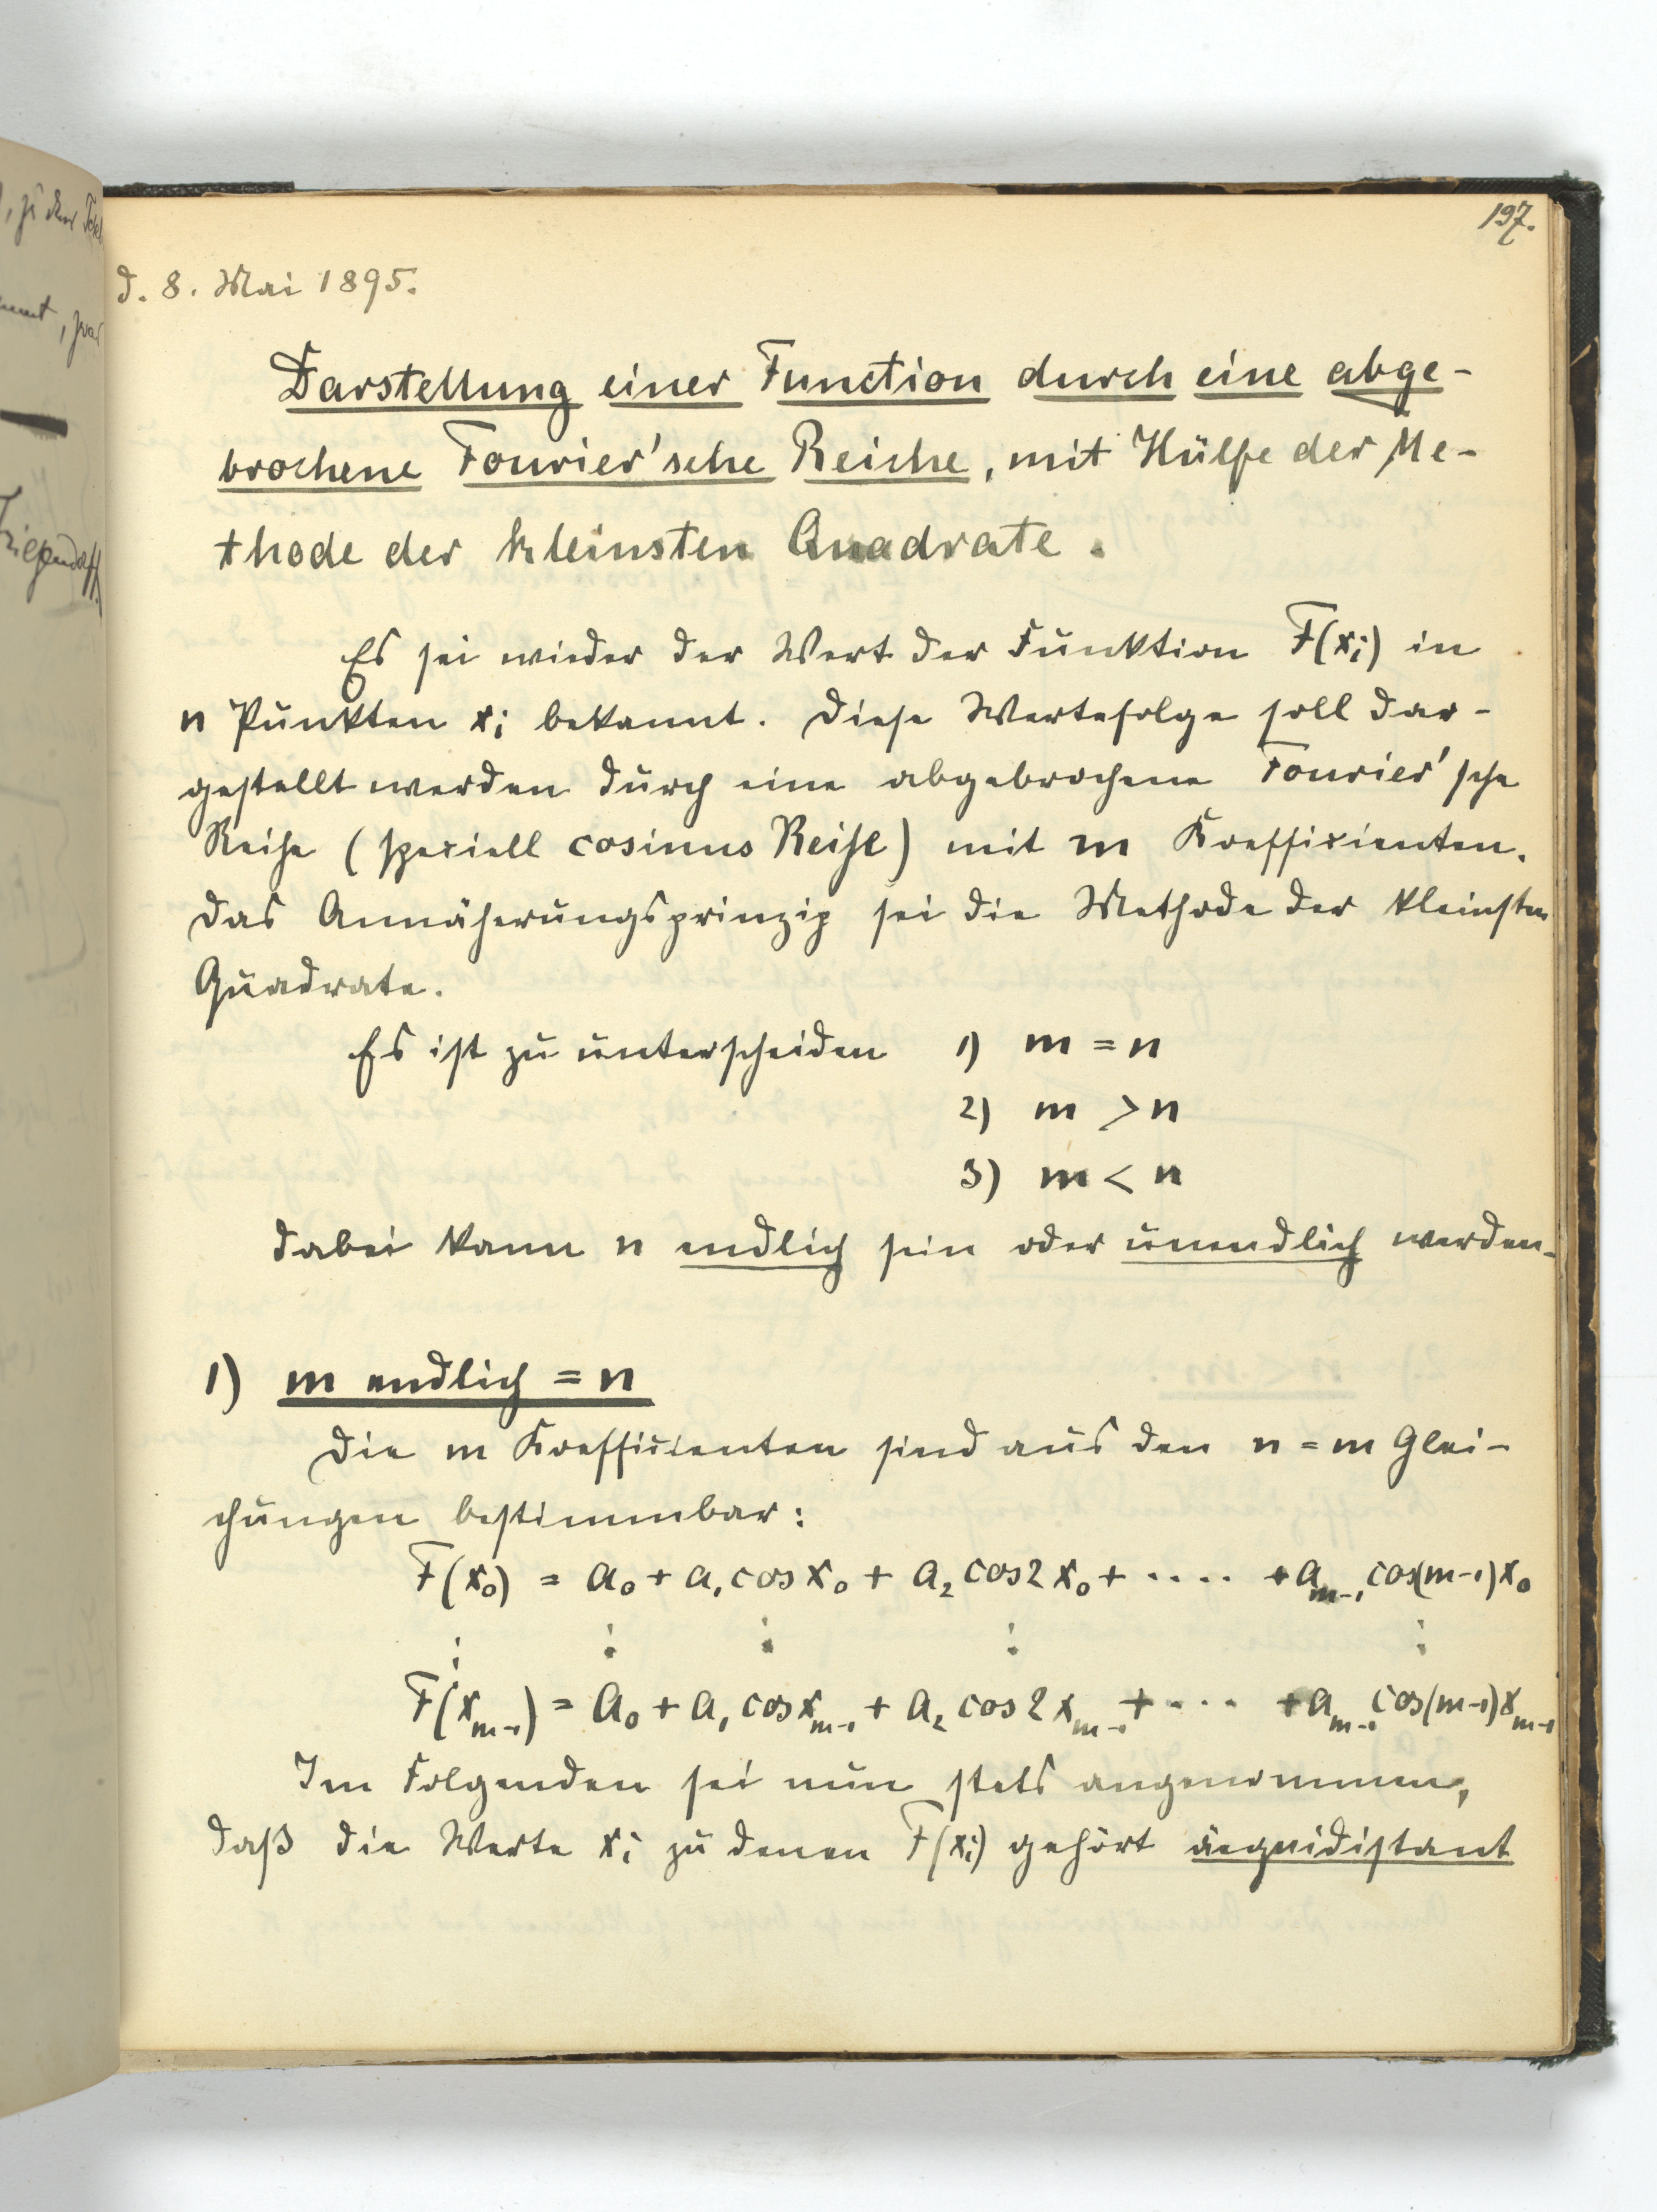 197.
d. 8. Mai 1895.
Darstellung einer Function durch eine abge-
brochene Fourier'sche Reihe, mit Hülfe der Me-
thode der kleinsten Quadrate.
Es sei wieder der Wert der Funktion F(x_i) in
n Punkten x_i bekannt. Diese Wertefolge soll dar-
gestellt werden durch eine abgebrochene Fourier'sche
Reihe (speziell cosinus Reihe) mit m Koeffizienten.
Das Annäherungsprinzip sei die Methode der kleinsten
Quadrate.
Es ist zu unterscheiden 1) m = n
2) m > n
3) m < n
Dabei kann n endlich sein oder unendlich werden.
1) m endlich = n
Die m Koeffizienten sind aus den n = m Glei-
chungen bestimmbar:
F(x_0) = a_0 + a_1 cos x_0 + a_2 cos 2 x_0 + ···· + a_{m-1} cos(m-1)x_0
⋮ ⋮ ⋮ ⋮ ⋮
F(x_{m-1}) = a_0 + a_1 cos x_{m-1} + a_2 cos 2 x_{m-1} + ···· + a_{m-1} cos(m-1)x_{m-1}
Im Folgenden sei nun stets angenommen,
daß die Werte x_i zu denen F(x_i) gehört äquidistant